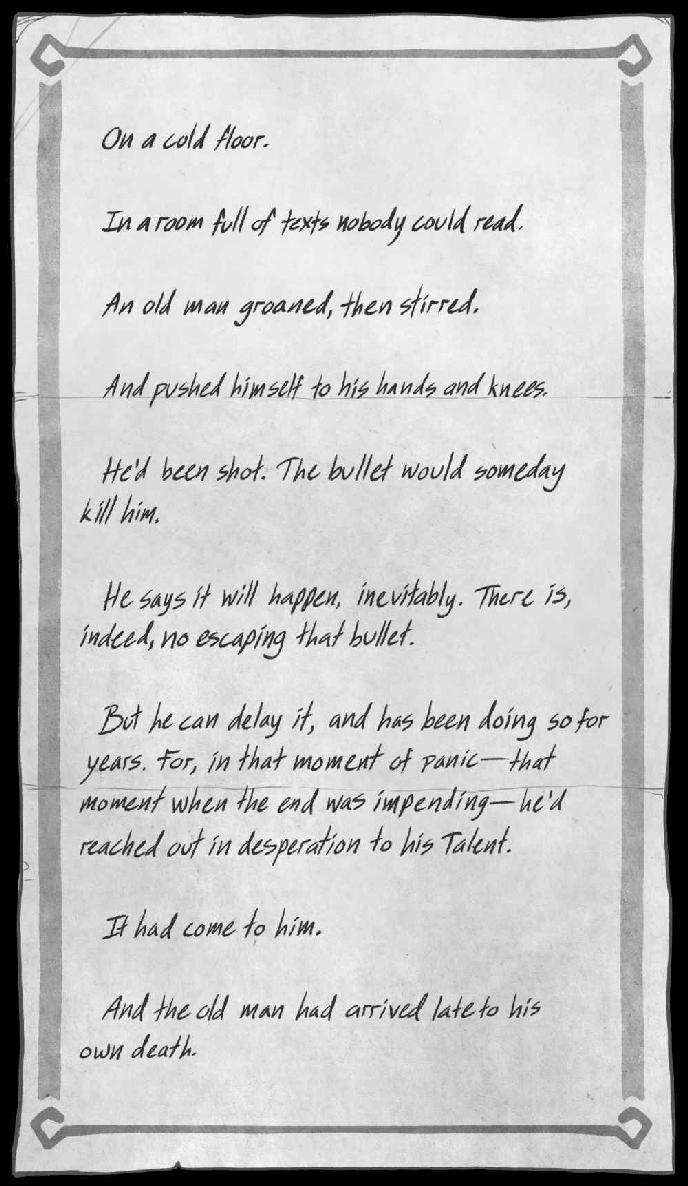 On a cold floor.
In a room full of texts nobody could read.
An old man groaned, then stirred.
And pushed himself to his hands and knees.
He'd been shot. The bullet would someday
kill him.
He says it will happen, inevitably. There is,
indeed, no escaping that bullet.
But he can delay it, and has been doing so for
years. For, in that moment of panic—that
moment when the end was impending—he'd
reached out in desperation to his Talent.
It had come to him.
And the old man had arrived late to his
own death.